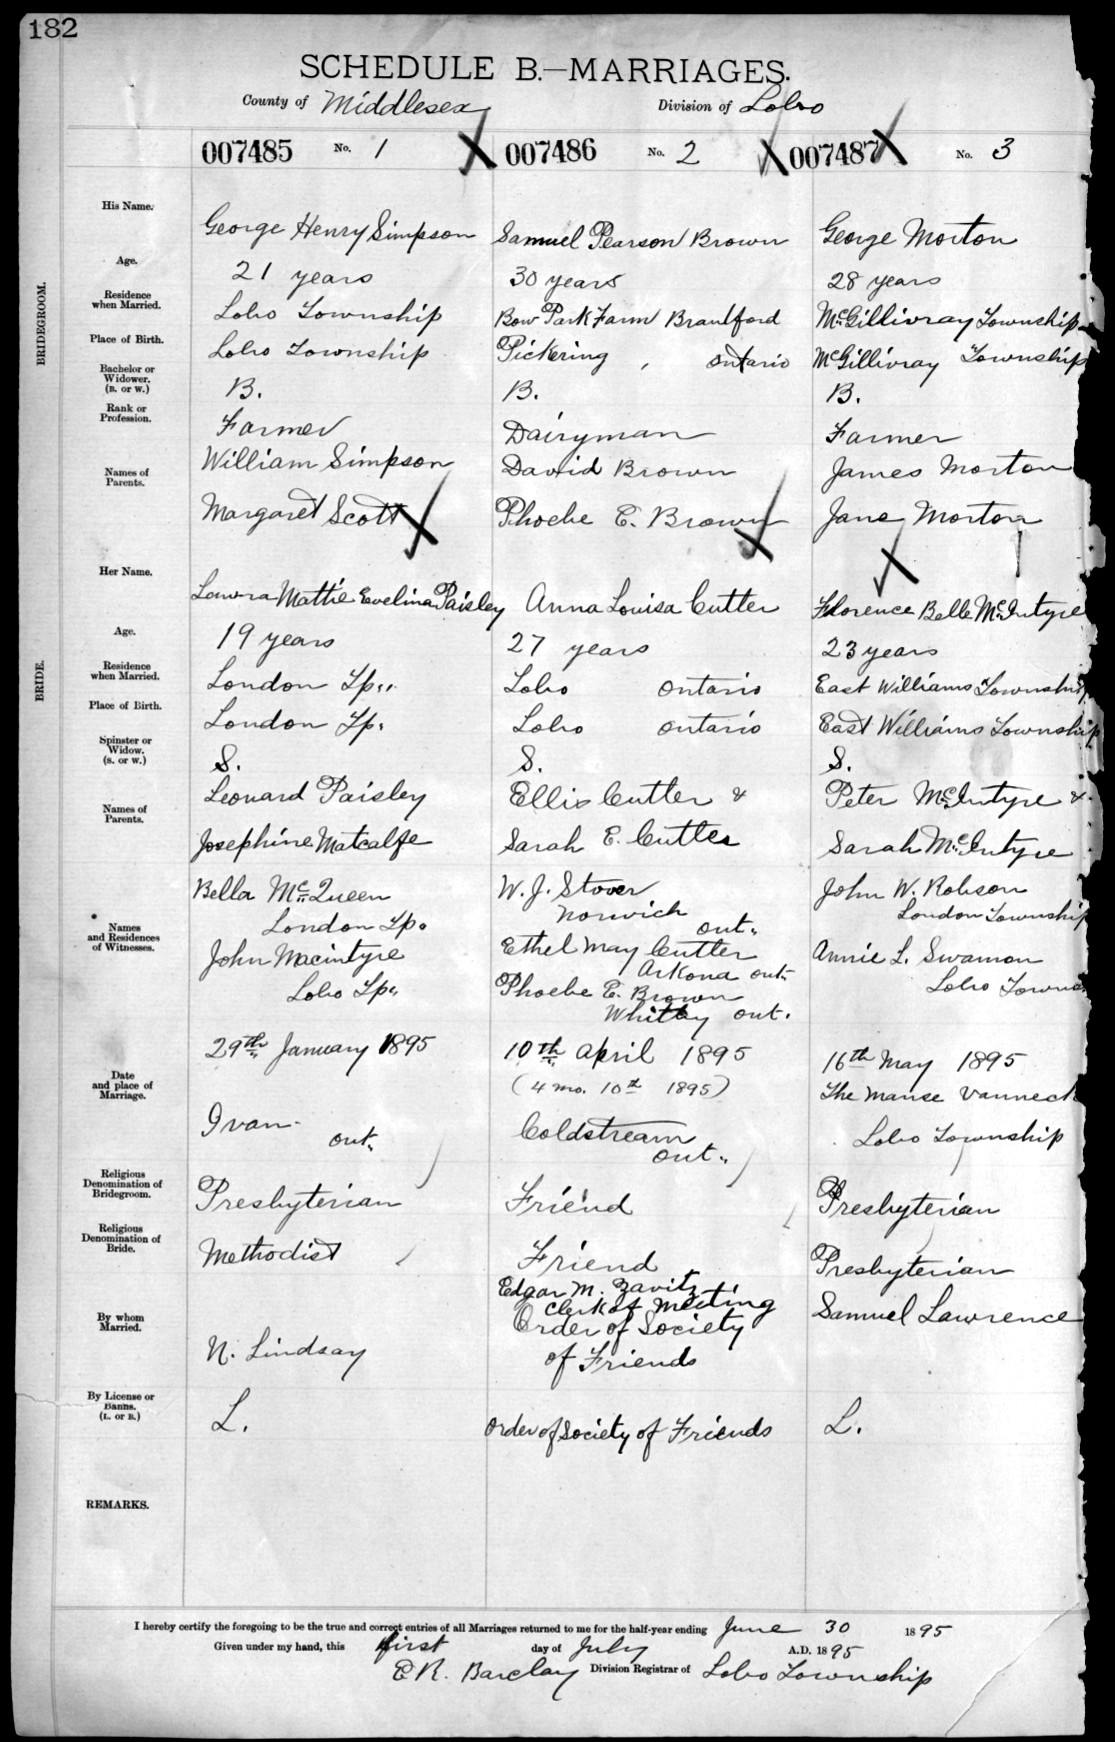 182
SCHEDULE B.—MARRIAGES.
County of Middlesex Division of Lobo
007485 No. 1 007486 No. 2 007487 No. 3
BRIDEGROOM.
His Name. George Henry Simpson Samuel Pearson Brown George Morton
Age. 21 years 30 years 28 years
Residence when Married. Lobo Township Bow Park Farm Brantford McGillivray Township
Place of Birth. Lobo Township Pickering, Ontario McGillivray Township
Bachelor or Widower. (B. or W.) B. B. B.
Rank or Profession. Farmer Dairyman Farmer
Names of Parents. William Simpson David Brown James Morton
Margaret Scott Phoebe E. Brown Jane Morton
BRIDE.
Her Name. Laura Mattie Evelina Paisley Anna Louisa Cutler Florence Belle McIntyre
Age. 19 years 27 years 23 years
Residence when Married. London Tp. Lobo Ontario East Williams Township
Place of Birth. London Tp. Lobo Ontario East Williams Township
Spinster or Widow. (S. or W.) S. S. S.
Names of Parents. Leonard Paisley Ellis Cutler & Peter McIntyre &
Josephine Metcalfe Sarah E. Cutler Sarah McIntyre
Names and Residences of Witnesses. Bella McQueen W. J. Stover John W. Robson
London Tp. Norwich Ont. London Township
John Macintyre Ethel May Cutler Annie L. Swamon
Lobo Tp. Arkona Ont. Lobo Towns
Phoebe E. Brown
Whitby Ont.
Date and place of Marriage. 29th January 1895 10th April 1895 16th May 1895
(4 mo. 10th 1895) The Manse Vanneck
Ivan Ont. Coldstream Ont. Lobo Township
Religious Denomination of Bridegroom. Presbyterian Friend Presbyterian
Religious Denomination of Bride. Methodist Friend Presbyterian
By whom Married. N. Lindsay Edgar M. Zavitz Samuel Lawrence
Clerk of Meeting
Order of Society
of Friends
By License or Banns. (L. or B.) L. Order of Society of Friends L.
REMARKS.
I hereby certify the foregoing to be the true and correct entries of all Marriages returned to me for the half-year ending June 30 1895
Given under my hand, this first day of July A.D. 1895
E R. Barclay Division Registrar of Lobo Township